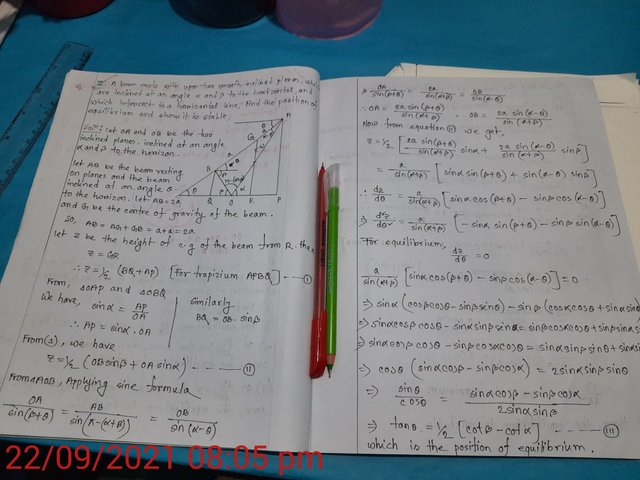 A beam rests with upon two smooth inclined planes, wh
are inclined at an angle α and β to the horizontal, and
which intersect in a horizontal line. Find the position of
equilibrium and show it is stable.
Solⁿ: Let OA and OB be the two
inclined planes, inclined at an angle
α and β to the horizon.
Let AB be the beam resting
on planes and the beam
inclined at an angle θ
to the horizon. Let AB = 2a
and G be the centre of gravity of the beam.
So, AB = AG + GB = a + a = 2a
Let z be the height of c.g of the beam from R. the
z = GR
∴ z = 1/2 (BQ + AP) [For trapizium APBQ] — (I)
From, △OAP and △OBQ
We have, sinα = AP/OA
∴ AP = sinα. OA
Similarly
BQ = OB. sinβ
From (I), we have
z = 1/2 (OB sinβ + OA sinα) ---- (II)
From △AOB, Applying sine formula
OA/sin(β+θ) = AB/sin(π-(α+β)) = OB/sin(α-θ)
A
G
B
θ
Q O R P
⇒ OA/sin(β+θ) = 2a/sin(α+β) = OB/sin(α-θ)
∴ OA = 2a sin(β+θ)/sin(α+β), OB = 2a sin(α-θ)/sin(α+β)
Now from equation (II) we get,
z = 1/2 [2a sin(β+θ)/sin(α+β) sinα + 2a sin(α-θ)/sin(α+β) sinβ]
= a/sin(α+β) [sinα sin(β+θ) + sin(α-θ) sinβ]
∴ dz/dθ = a/sin(α+β) [sinα cos(β+θ) - sinβ cos(α-θ)]
⇒ d²z/dθ² = a/sin(α+β) [-sinα sin(β+θ) - sinβ sin(α-θ)]
For equilibrium, dz/dθ = 0
a/sin(α+β) [sinα cos(β+θ) - sinβ cos(α-θ)] = 0
⇒ sinα (cosβ cosθ - sinβ sinθ) - sinβ (cosα cosθ + sinα
⇒ sinα cosβ cosθ - sinα sinβ sinθ = sinβ cosα cosθ + sinβ sinα
⇒ sinα cosβ cosθ - sinβ cosα cosθ = sinα sinβ sinθ + sinα si
⇒ cosθ (sinα cosβ - sinβ cosα) = 2 sinα sinβ sinθ
⇒ sinθ/cosθ = sinα cosβ - sinβ cosα/2 sinα sinβ
⇒ tanθ = 1/2 [cotβ - cotα] ---- (III)
which is the position of equilibrium.
22/09/2021 08:05 pm